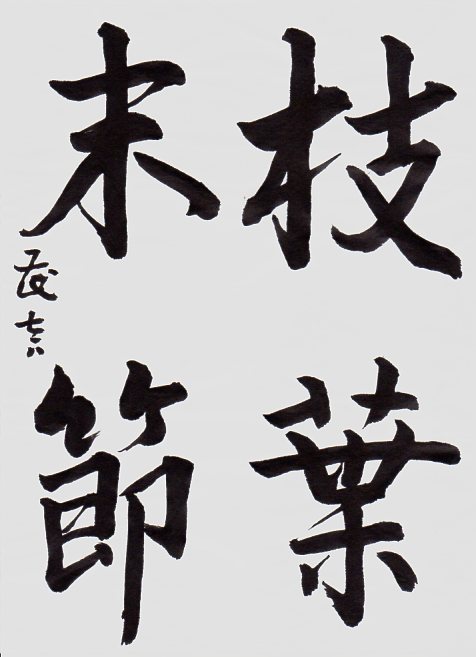 枝葉
末節